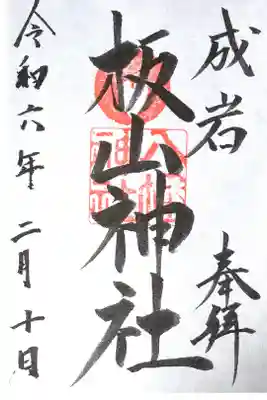 成岩
奉拝
板山神社
令和六年二月十日